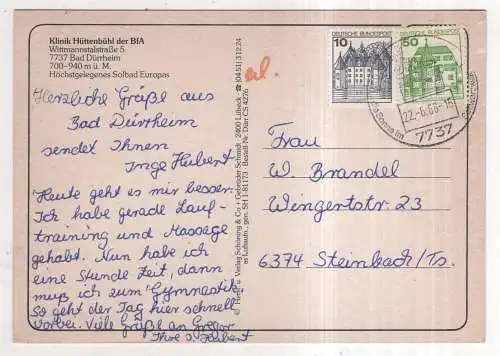 Klinik Hüttenbühl der BfA
Wittmannstalstraße 5
7737 Bad Dürrheim
700-940 m ü. M.
Höchstgelegenes Solbad Europas
Herzliche Grüße aus
Bad Dürrheim
sendet Ihnen
Inge Hubert
Heute geht es mir besser.
Ich habe gerade Lauf-
training und Massage
gehabt. Nun habe ich
eine Stunde Zeit, dann
muß ich zum Gymnastik
So geht der Tag hier schnell
vorbei. Viele Grüße an Gregor
Ihre I. Hubert
Verlag Schöning & Co + Gebrüder Schmidt · 2400 Lübeck ☎ (04 51) 3 12 24
Luftaufn. gen. SH -811/73 · Bestell-Nr. Dürr CS 4276
el.
10
DEUTSCHE BUNDESPOST
50
DEUTSCHE BUNDESPOST
22.-6.88-15
7737
Frau
W. Brandel
Wingertstr. 23
6374 Steinbach/Ts.